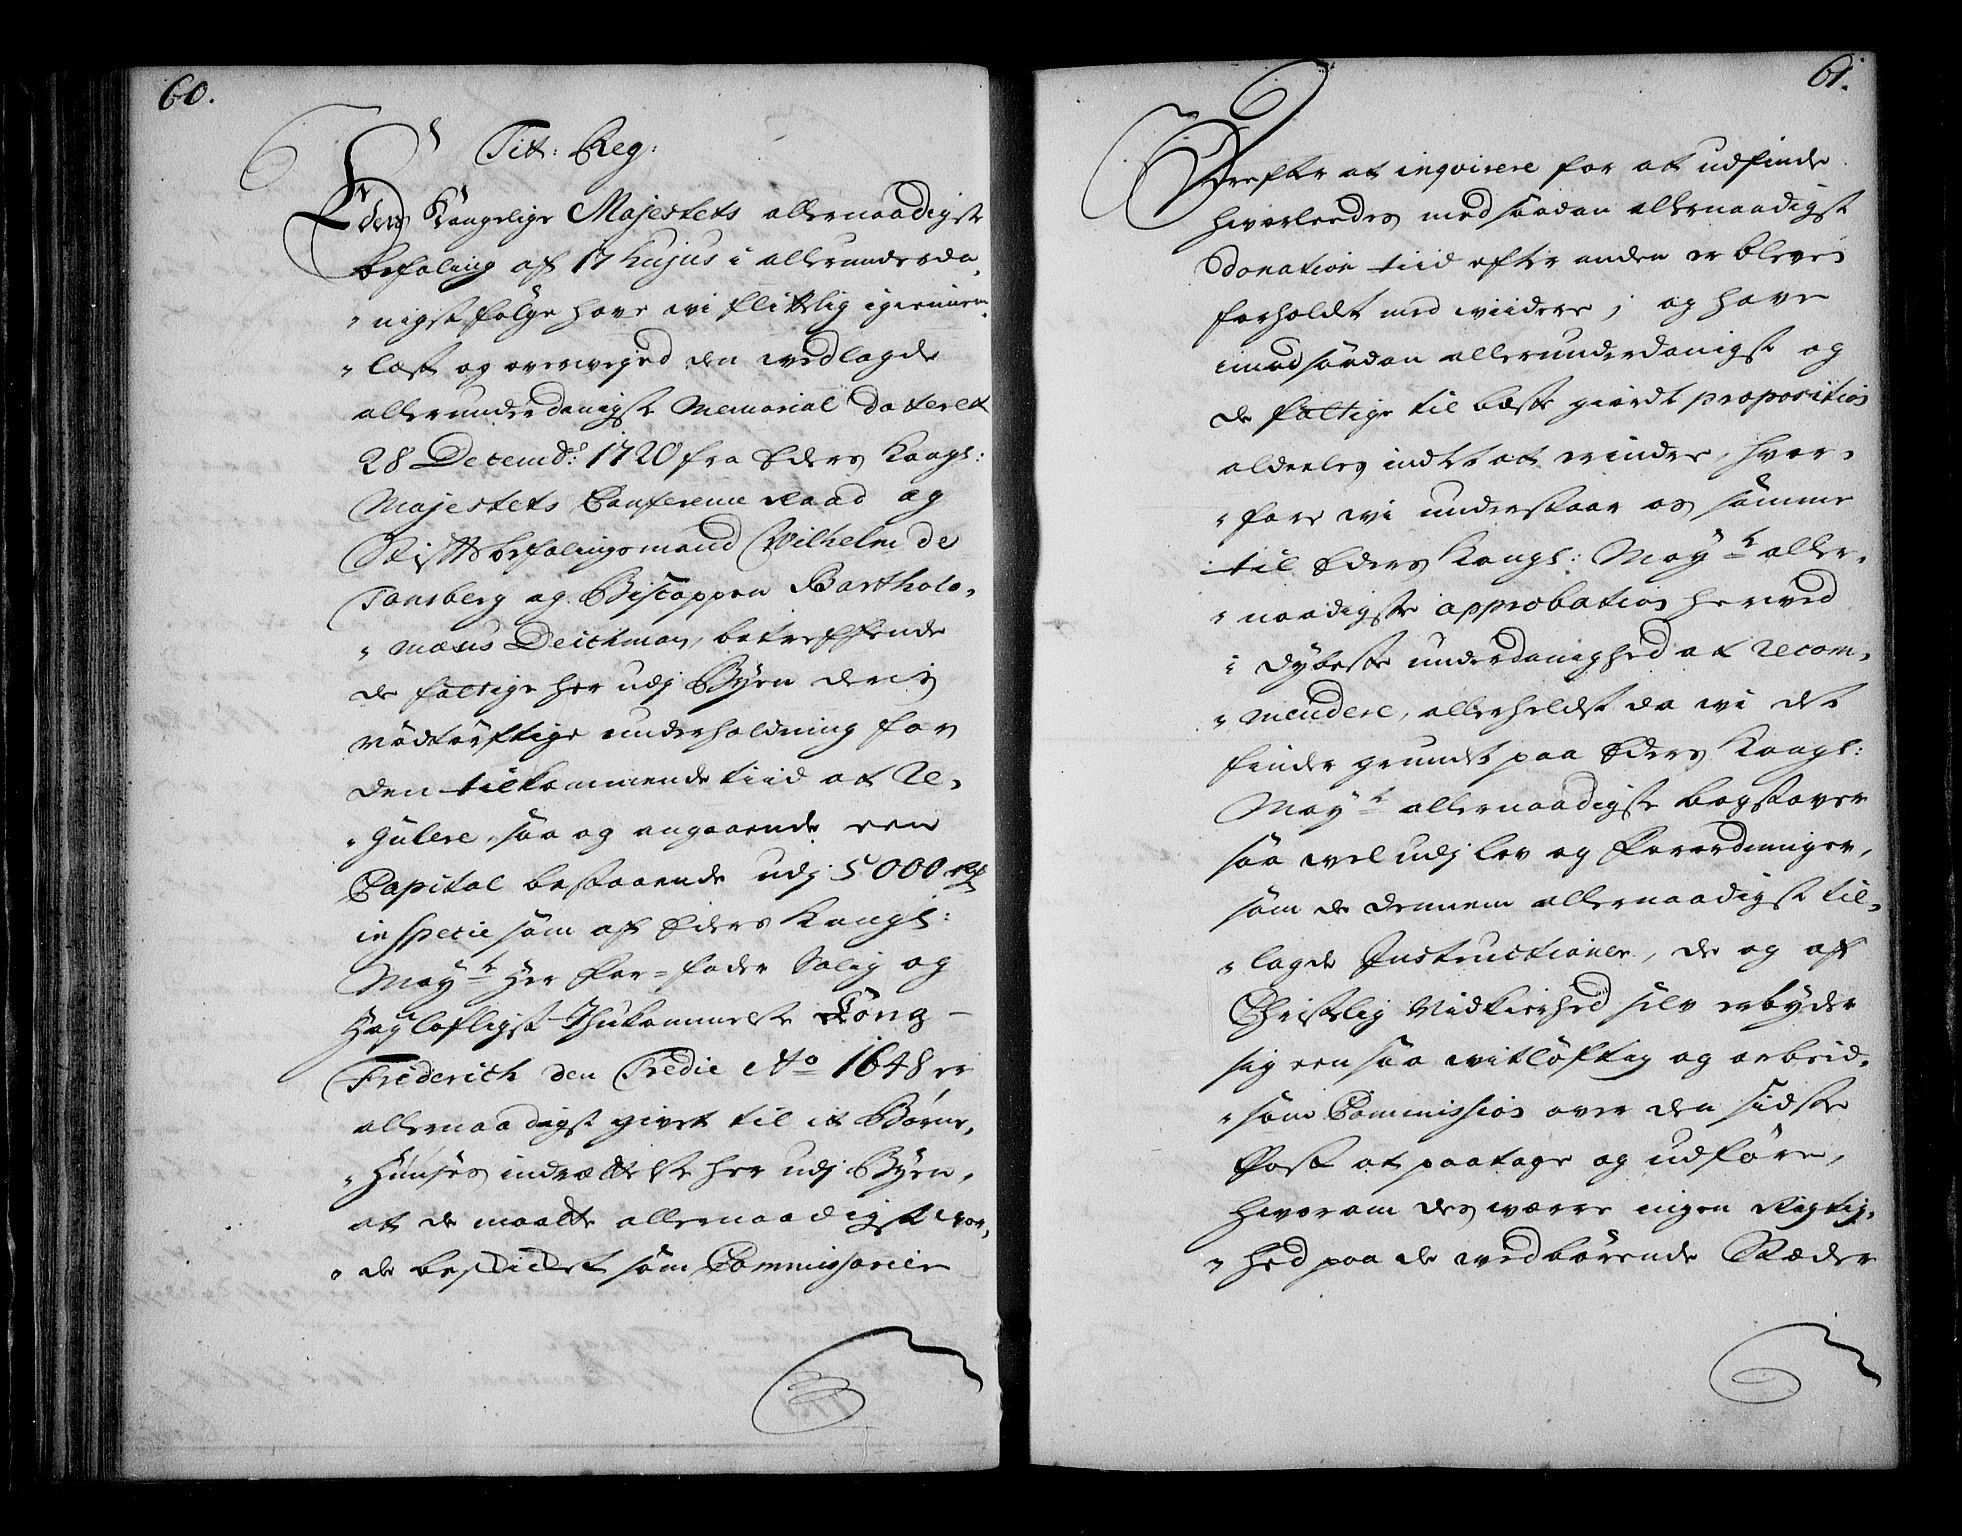 60.
Tit: Reg:
Eders Kongelige Majestets allernaadigste
befaling af 17 hujus i allerunderda,
„ nigst følge have wi flittelig igiennem„
„ læst og overvejed den wedlagde
allerunderdanigste Memorial dateret
28 Decemb: 1720 fra Eders Kongl:
Majestets Conference Raad og
Stiftbefalingsmand Wilhelm de
Tonsberg og Biscoppen Bartholo,
„ mæus Deichman, betreffende
de fattige her udj Byen deris
nödtörftige underholdning for
den tilkommende tiid at re,
„ gulere, saa og angaaende een
Capital bestaaende udj 5000 rdr
in specie som af Eders Kongl:
May.t Her Far=fader Salig og
Høylofligst Ihukommelse Kong
Friderich den Tredie Ao 1648 er
allernaadigst givet til et Børne,
„ Huuses indrættelse her udj Byen,
at de maatte allernaadigst wor,
„ de beskicket som Commissarier
61.
Derefter at inqvirere for at udfinde
hvorleedes med saadan allernaadigst
Donation tiid efter anden er bleven
forholdt med wiidere; og have
imod saadan allerunderdanigst og
de fattige til beste giordt proposition
aldeeles indtet at erindre, hvor,
„ fore wi understaar os samme
til Eders Kongl: May.t aller,
„ naadigste approbation herved
i dybeste underdanighed at recom,
„ mendere, allerheldst da wi det
finder grundet paa Eders Kongl:
May.t allernaadigste bogstaver
saa wel udj lov og Forordninger,
som de dennem allernaadigst til,
„ lagde Instructioner, de og af
Christelig Nidkierhed selv erbyder
sig een saa witløftig og arbeid,
„ som Commission over den sidste
Post at paatage og udføre,
hvorom des wærre ingen Rigtig,
„ hed paa de wedbørende Stæder